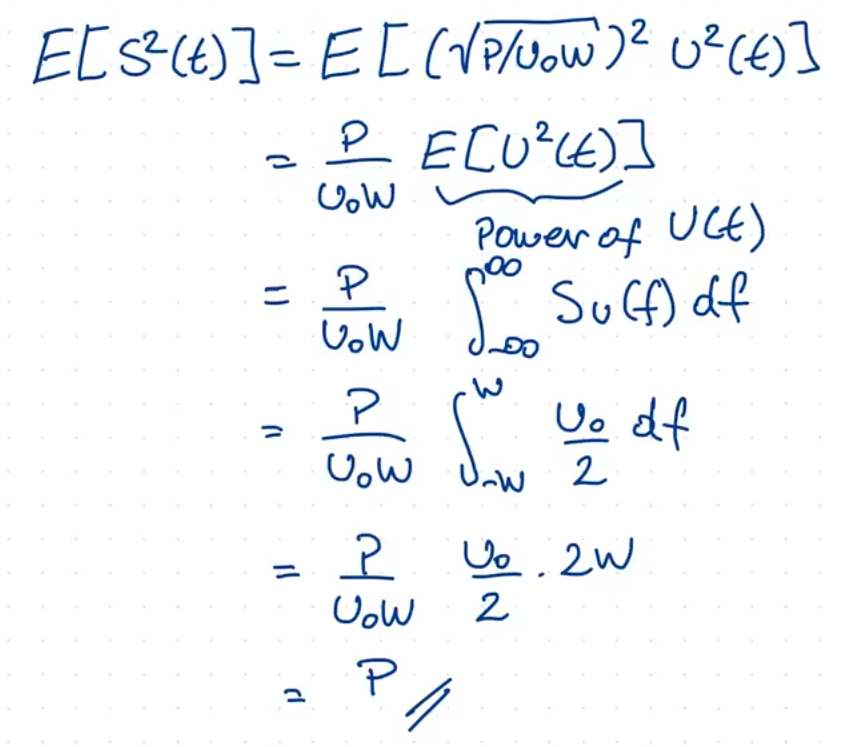 E[S²(t)] = E[(√P/U₀W)² U²(t)]
= P/U₀W E[U²(t)]
Power of U(t)
= P/U₀W ∫_{-∞}^{∞} S_U(f) df
= P/U₀W ∫_{-W}^{W} U₀/2 df
= P/U₀W U₀/2 . 2W
= P //